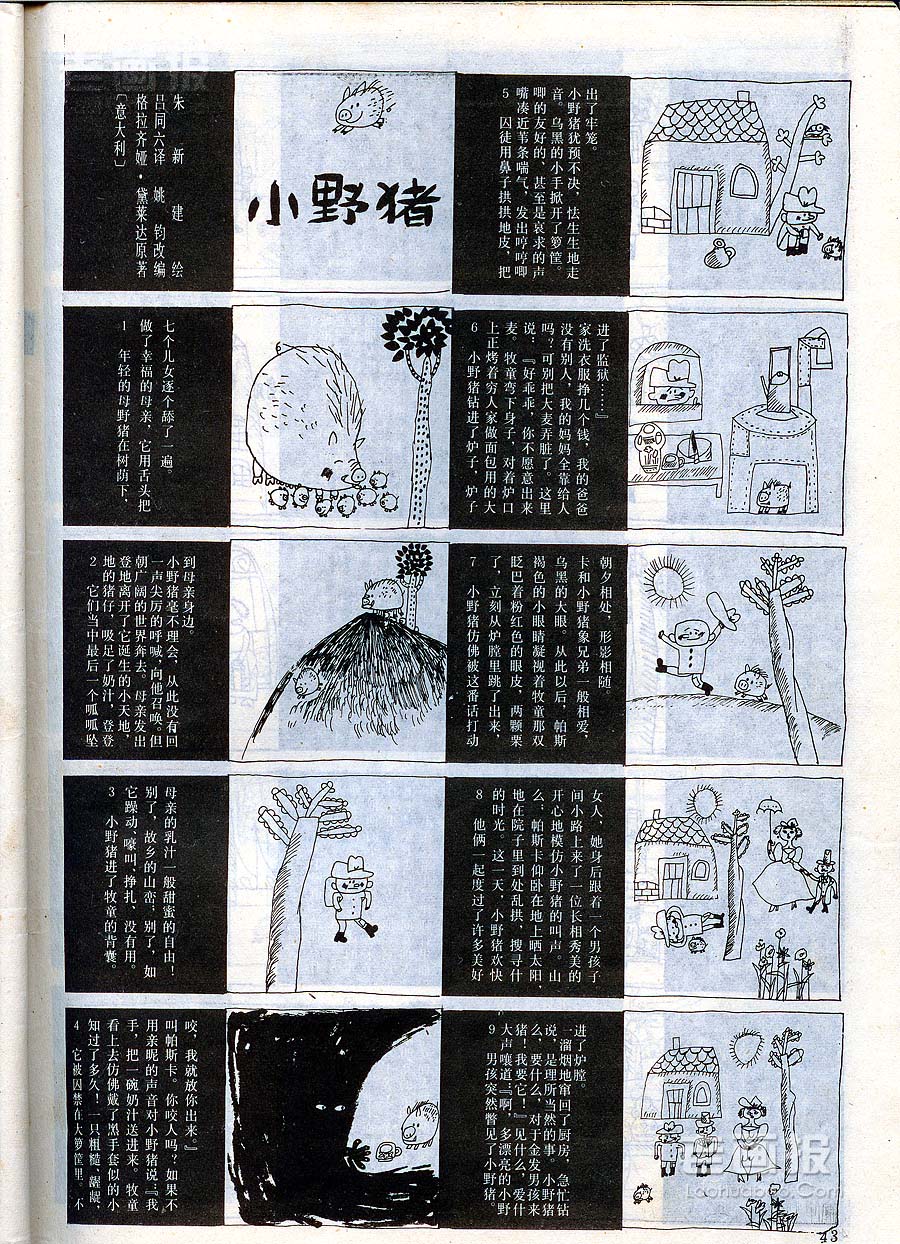 小野猪
〔意大利〕
格拉齐娅·黛莱达原著
吕同六译 姚钧改编
朱新建绘
1 年轻的母野猪在树荫下，
做了幸福的母亲，它用舌头把
七个儿女逐个舔了一遍。
2 它们当中最后一个呱呱坠
地的猪仔，吸足了奶汁，登登
登地离开了它诞生的小天地，
朝广阔的世界奔去。母亲发出
一声尖厉的呼喊，向他召唤。但
小野猪毫不理会，从此没有回
到母亲身边。
3 小野猪进了牧童的背囊。
它躁动、嚎叫、挣扎，没有用。
别了，故乡的山峦；别了，如
母亲的乳汁一般甜蜜的自由！
4 它被囚禁在大箩筐里。不
知过了多久！一只粗糙、龌龊、
看上去仿佛戴了黑手套似的小
手，把一碗奶汁送进来。牧童
用亲昵的声音对小野猪说：『我
叫帕斯卡。你咬人吗？如果不
咬，我就放你出来。』
5 囚徒用鼻子拱拱地皮，把
嘴凑近苇条喘气，发出哼哼唧
唧的友好的、甚至是哀求的声
音。乌黑的小手掀开了箩筐。
小野猪犹预不决，怯生生地走
出了牢笼。
6 小野猪钻进了炉子，炉子
上正烤着穷人家做面包用的大
麦。牧童弯下身子，对着炉口
说：『好乖乖，你不愿意出来
吗？可别把大麦弄脏了。这里
没有别人，我的妈妈全靠给人
家洗衣服挣几个钱，我的爸爸
进了监狱……』
7 小野猪仿佛被这番话打动
了，立刻从炉膛里跳了出来，
眨巴着粉红色的眼皮，两颗栗
褐色的小眼睛凝视着牧童那双
乌黑的大眼。从此以后，帕斯
卡和小野猪象兄弟一般相爱，
朝夕相处，形影相随。
8 他俩一起度过了许多美好
的时光。这一天，小野猪欢快
地在院子里到处乱拱，搜寻什
么；帕斯卡仰卧在地上晒太阳，
开心地模仿小野猪的叫声。山
间小路上来了一位长相秀美的
女人，她身后跟着一个男孩子
9 男孩突然瞥见了小野猪
大声嚷道：『啊，多漂亮的小野
猪！我要它！』见什么，爱什
么，要什么，对于金发男孩来
说，是理所当然的事。小野猪
一溜烟地窜回了厨房，急忙钻
进了炉膛。
43